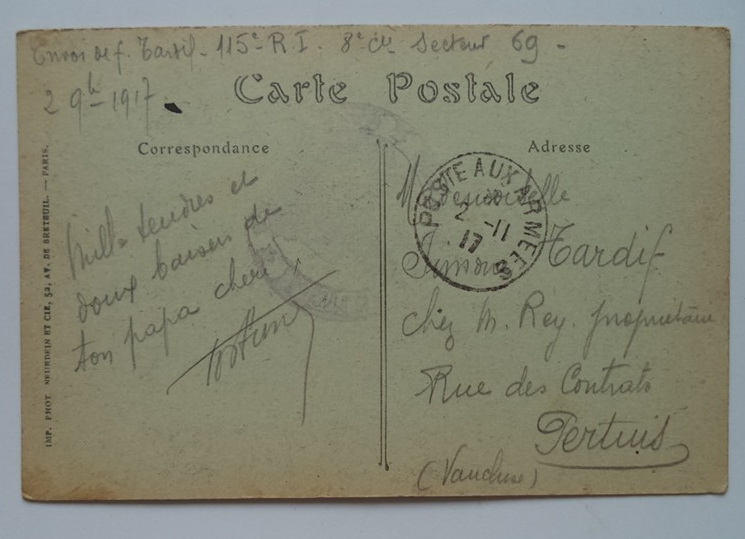 Envoi de f. Tardif - 115e R.I. 8e Cie Secteur 69 -
2 9b-1917
Carte Postale
Correspondance
Adresse
Mille tendres et
doux baisers de
ton papa cheri
POSTE AUX ARMEES
2 -11
17
Mademoiselle
Simone Tardif
chez M. Rey. propriétaire
Rue des Contrats
Pertuis
(Vaucluse)
IMP. PHOT NEURDEIN ET CIE, 52, AV. DE BRETEUIL. — PARIS.